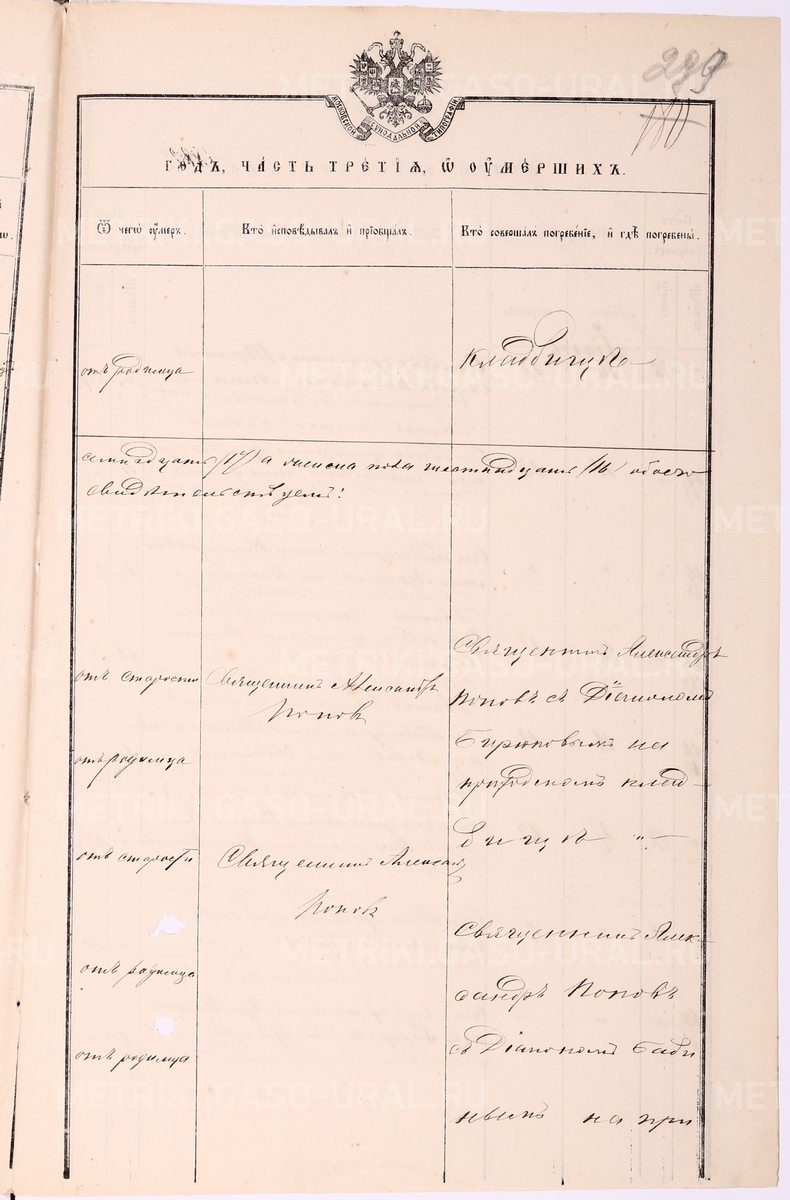 239
100
МОСКОВСКОЙ СѴНОДАЛЬНОЙ ТИПОГРАФІИ
ГОДЪ, ЧА́СТЬ ТРЕТІЯ, Ѡ ОУМЕ́РШИХЪ.
Ѿ чегѡ оу́меръ.
Кто̀ и҆сповѣ́дывалъ и҆ прїѡбща́лъ.
Кто̀ соверша́лъ погребе́нїе, и҆ гдѣ̀ погребены̀.
отъ родимца
кладбищѣ
семнадцать /17/ а писма пола шестнадцать /16/ обоего
свидѣтельствуемъ:
отъ старости
Священникъ Александръ
Поповъ
Священникъ Александръ
Поповъ съ Діакономъ
Бирюковымъ на
приходскомъ клад-
бищѣ
отъ родимца
отъ старости
Священникъ Александ
Поповъ
отъ родимца
отъ родимца
Священникъ Алек-
сандръ Поповъ
съ Діакономъ Баби
новымъ на при
METRIKI.GASO-URAL.RU